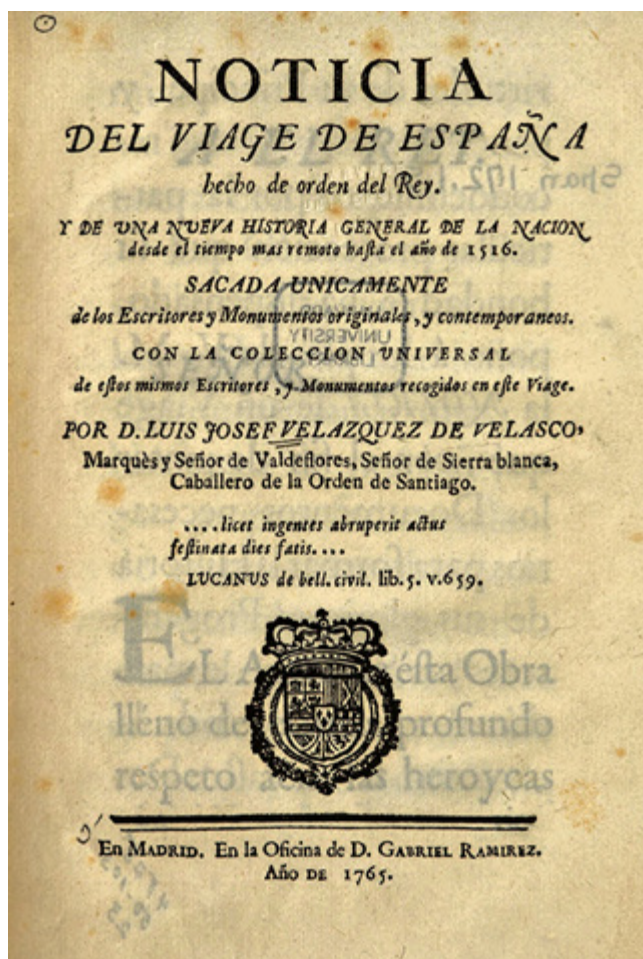 NOTICIA
DEL VIAGE DE ESPAÑA
hecho de orden del Rey.
Y DE UNA NUEVA HISTORIA GENERAL DE LA NACION
desde el tiempo mas remoto haſta el año de 1516.
SACADA UNICAMENTE
de los Eſcritores y Monumentos originales, y contemporaneos.
CON LA COLECCION UNIVERSAL
de eſtos mismos Eſcritores, y Monumentos recogidos en eſte Viage.
POR D. LUIS JOSEF VELAZQUEZ DE VELASCO,
Marquès y Señor de Valdeflores, Señor de Sierra blanca,
Caballero de la Orden de Santiago.
....licet ingentes abruperit actus
feſtinata dies fatis....
LUCANUS de bell. civil. lib. 5. v. 659.
EL A éſta Obra
llenó de profundo
respeto las heroycas
En MADRID. En la Oficina de D. GABRIEL RAMIREZ.
Año DE 1765.